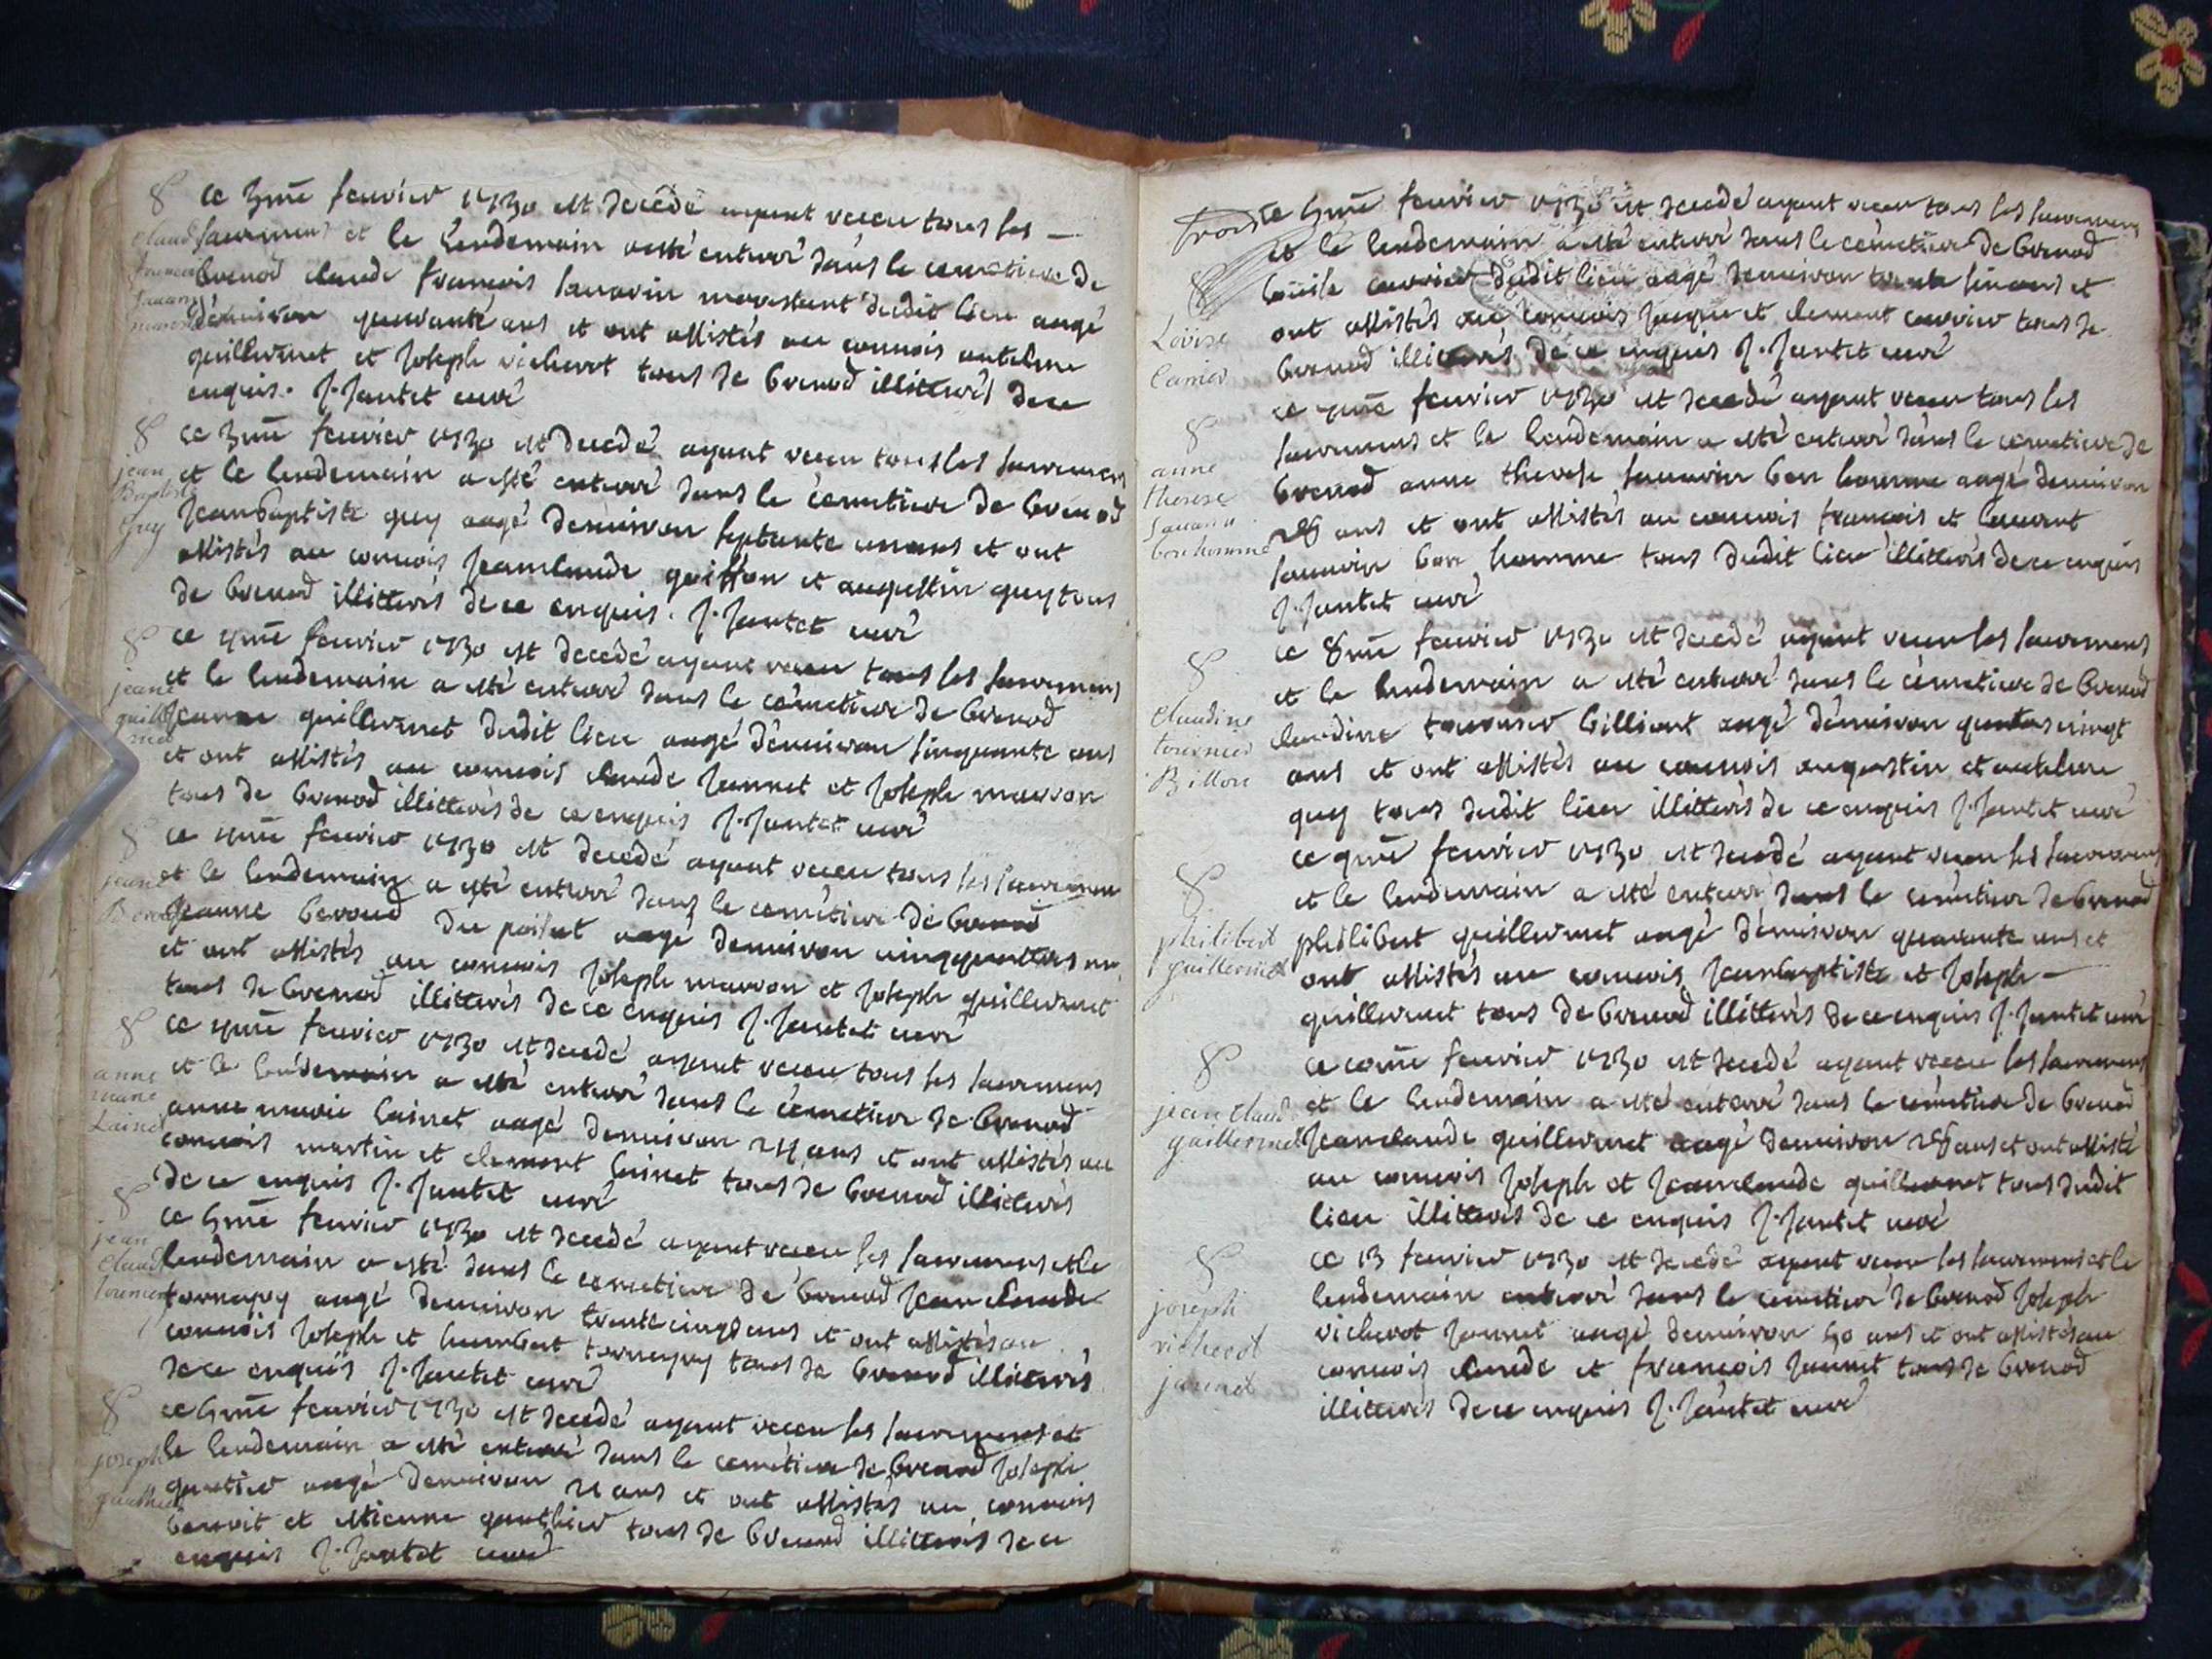 S
ce 3me feurier 1730 est decedé ayant receu tous les —
sacremens et le lendemain a esté enterré dans le cemetiere de
brenod claude françois sauarin dudit lieu aagé
denuiron quarante ans et ont assistés au conuois antelme
guillermet et joseph richerot tous de brenod illitterés de ce
enquis. J. Jantet curé
S
jean
Baptiste
Guy
ce 3me feurier 1730 est decedé ayant receu tous les sacremens
et le lendemain a esté enterré dans le cemetiere de brenod
jean baptiste guy aagé denuiron septante un ans et ont
assistés au conuois jeanclaude goiffon et augustin guy tous
de brenod illitterés de ce enquis. J. Jantet curé
S
ce 4me feurier 1730 est decedé ayant receu tous les sacremens
et le lendemain a esté enterré dans le cemetiere de brenod
jeanne guillermet dudit lieu aagé denuiron sinquante ans
et ont assistés au conuois claude jannet et joseph marron
tous de brenod illitterés de ce enquis J. Jantet curé
S
ce 4me feurier 1730 est decedé ayant receu tous les sacremens
et le lendemain a esté enterré dans le cemetiere de brenod
jeanne beroud du poisat aagé denuiron
et ont assistés au conuois joseph marron et joseph guillermet
tous de brenod illitterés de ce enquis J. Jantet curé
S
anne
marie
Lainet
ce 4me feurier 1730 est decedé ayant receu tous les sacremens
et le lendemain a esté enterré dans le cemetiere de brenod
anne marie lainet aagé denuiron ans et ont assistés au
conuois martin et clement lainet tous de brenod illitterés
de ce enquis J. Jantet curé
S
jean
claude
ce 5me feurier 1730 est decedé ayant receu les sacremens et le
lendemain a esté dans le cemetiere de brenod jean claude
tornepuy aagé denuiron trente cinq ans et ont assistés au
conuois joseph et humbert tornepuy tous de brenod illitterés
de ce enquis J. Jantet curé
S
joseph
gauthier
ce 5me feurier 1730 est decedé ayant receu les sacremens et
le lendemain a esté enterré dans le cemetiere de brenod joseph
gautier aagé denuiron ans et ont assistés au conuois
benoit et etienne gauthier tous de brenod illitterés de ce
enquis J. Jantet curé
ce 5me feurier 1730 est decedé ayant receu tous les sacremens
et le lendemain a esté enterré dans le cemetiere de brenod
louise carrier dudit lieu aagé denuiron trente ans et
ont assistés au conuois jaque et clement carrier tous de
brenod illitterés de ce enquis J. Jantet curé
S
Loüise
Carrier
ce 4me feurier 1730 est decedé ayant receu tous les
sacremens et le lendemain a esté enterré dans le cemetiere de
brenod anne therese sauarin bon homme aagé denuiron
ans et ont assistés au conuois françois et laurent
sauarin bon homme tous dudit lieu illitterés de ce enquis
J. Jantet curé
S
anne
therese
sauarin
bonhomme
ce 8me feurier 1730 est decedé ayant receu les sacremens
et le lendemain a esté enterré dans le cemetiere de brenod
claudine tournier billiont aagé denuiron quatre vingt
ans et ont assistés au conuois augustin et antelme
guy tous dudit lieu illitterés de ce enquis J. Jantet curé
S
claudine
tournier
Billion
ce 9me feurier 1730 est decedé ayant receu les sacremens
et le lendemain a esté enterré dans le cemetiere de brenod
philibert guillermet aagé denuiron quarante ans et
ont assistés au conuois jean baptiste et joseph —
guillermet tous de brenod illitterés de ce enquis J. Jantet curé
S
philibert
guillermet
ce feurier 1730 est decedé ayant receu les sacremens
et le lendemain a esté enterré dans le cemetiere de brenod
jeanclaude guillermet aagé denuiron ans et ont assisté
au conuois joseph et jeanclaude guillermet tous dudit
lieu illitterés de ce enquis J. Jantet curé
S
jean claude
guillermet
ce 13 feurier 1730 est decedé ayant receu les sacremens et le
lendemain enterré dans le cemetiere de brenod joseph
richerot jannet aagé denuiron 50 ans et ont assistés au
conuois claude et françois jannet tous de brenod
illitterés de ce enquis J. Jantet curé
S
joseph
richerot
jannet